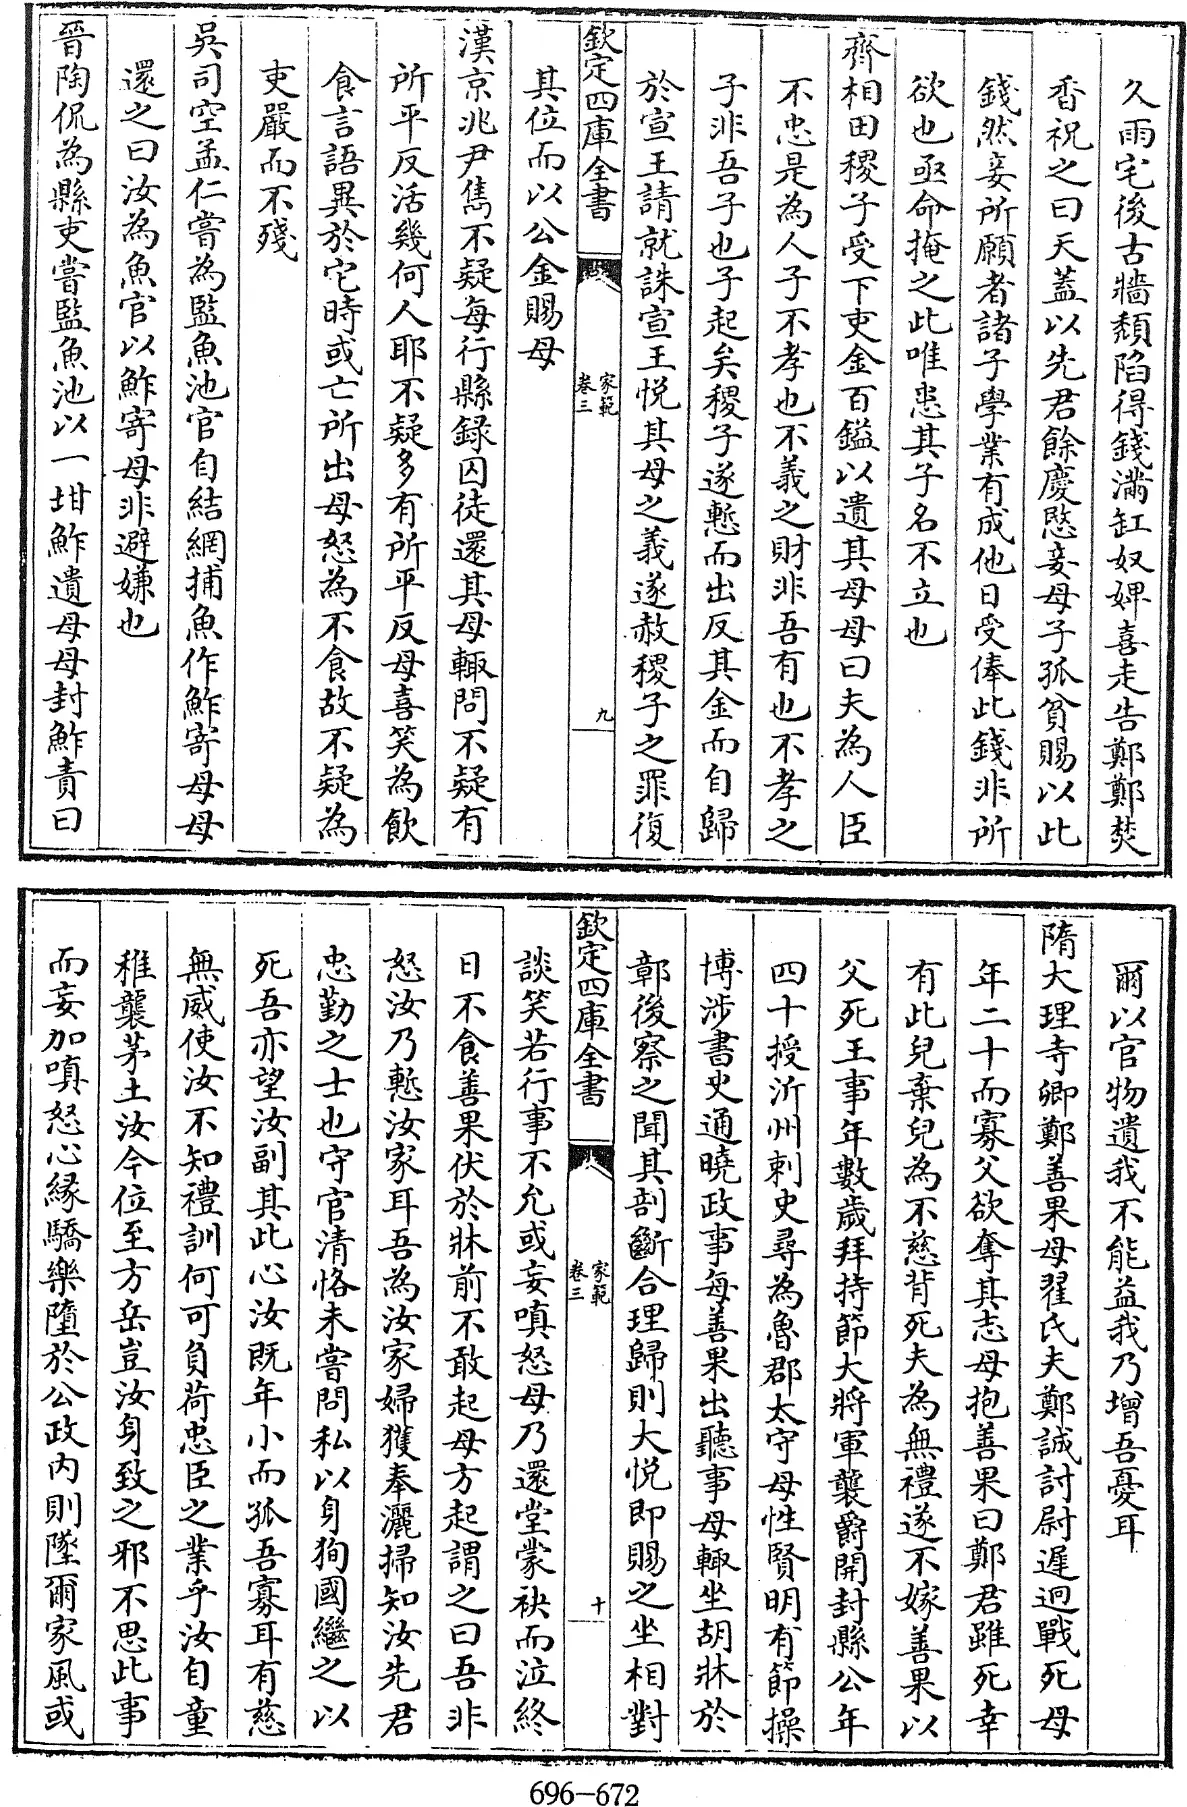 久雨宅後古牆頹陷得錢滿缸奴婢喜走告鄭鄭焚
香祝之曰天蓋以先君餘慶愍妾母子孤貧賜以此
錢然妾所願者諸子學業有成他日受俸此錢非所
欲也亟命掩之此唯患其子名不立也
齊相田稷子受下吏金百鎰以遺其母母曰夫為人臣
不忠是為人子不孝也不義之財非吾有也不孝之
子非吾子也子起矣稷子遂慙而出反其金而自歸
於宣王請就誅宣王悅其母之義遂赦稷子之罪復
欽定四庫全書
家範
卷三
九
其位而以公金賜母
漢京兆尹雋不疑每行縣錄囚徒還其母輒問不疑有
所平反活幾何人耶不疑多有所平反母喜笑為飲
食言語異於它時或亡所出母怒為不食故不疑為
吏嚴而不殘
吳司空孟仁嘗為監魚池官自結網捕魚作鮓寄母母
還之曰汝為魚官以鮓寄母非避嫌也
晉陶侃為縣吏嘗監魚池以一坩鮓遺母母封鮓責曰
爾以官物遺我不能益我乃增吾憂耳
隋大理寺卿鄭善果母翟氏夫鄭誠討尉遲迥戰死母
年二十而寡父欲奪其志母抱善果曰鄭君雖死幸
有此兒棄兒為不慈背死夫為無禮遂不嫁善果以
父死王事年數歲拜持節大將軍襲爵開封縣公年
四十授沂州刺史尋為魯郡太守母性賢明有節操
博涉書史通曉政事每善果出聽事母輒坐胡牀於
鄣後察之聞其剖斷合理歸則大悅即賜之坐相對
欽定四庫全書
家範
卷三
十
談笑若行事不允或妄嗔怒母乃還堂蒙袂而泣終
日不食善果伏於牀前不敢起母方起謂之曰吾非
怒汝乃慙汝家耳吾為汝家婦獲奉灑掃知汝先君
忠勤之士也守官清恪未嘗問私以身狥國繼之以
死吾亦望汝副其此心汝既年小而孤吾寡耳有慈
無威使汝不知禮訓何可負荷忠臣之業乎汝自童
稚襲茅土汝今位至方岳豈汝身致之邪不思此事
而妄加嗔怒心緣驕樂墮於公政內則墜爾家風或
696-672